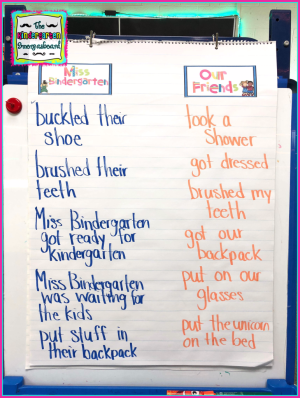 The
Kindergarten
Smorgasboard
Miss
Bindergarten
buckled their
shoe
brushed their
teeth
Miss Bindergarten
got ready for
kindergarten
Miss Bindergarten
was waiting for
the kids
put stuff in
their backpack
Our
Friends
took a
shower
got dressed
brushed my
teeth
got our
backpack
put on our
glasses
put the unicorn
on the bed